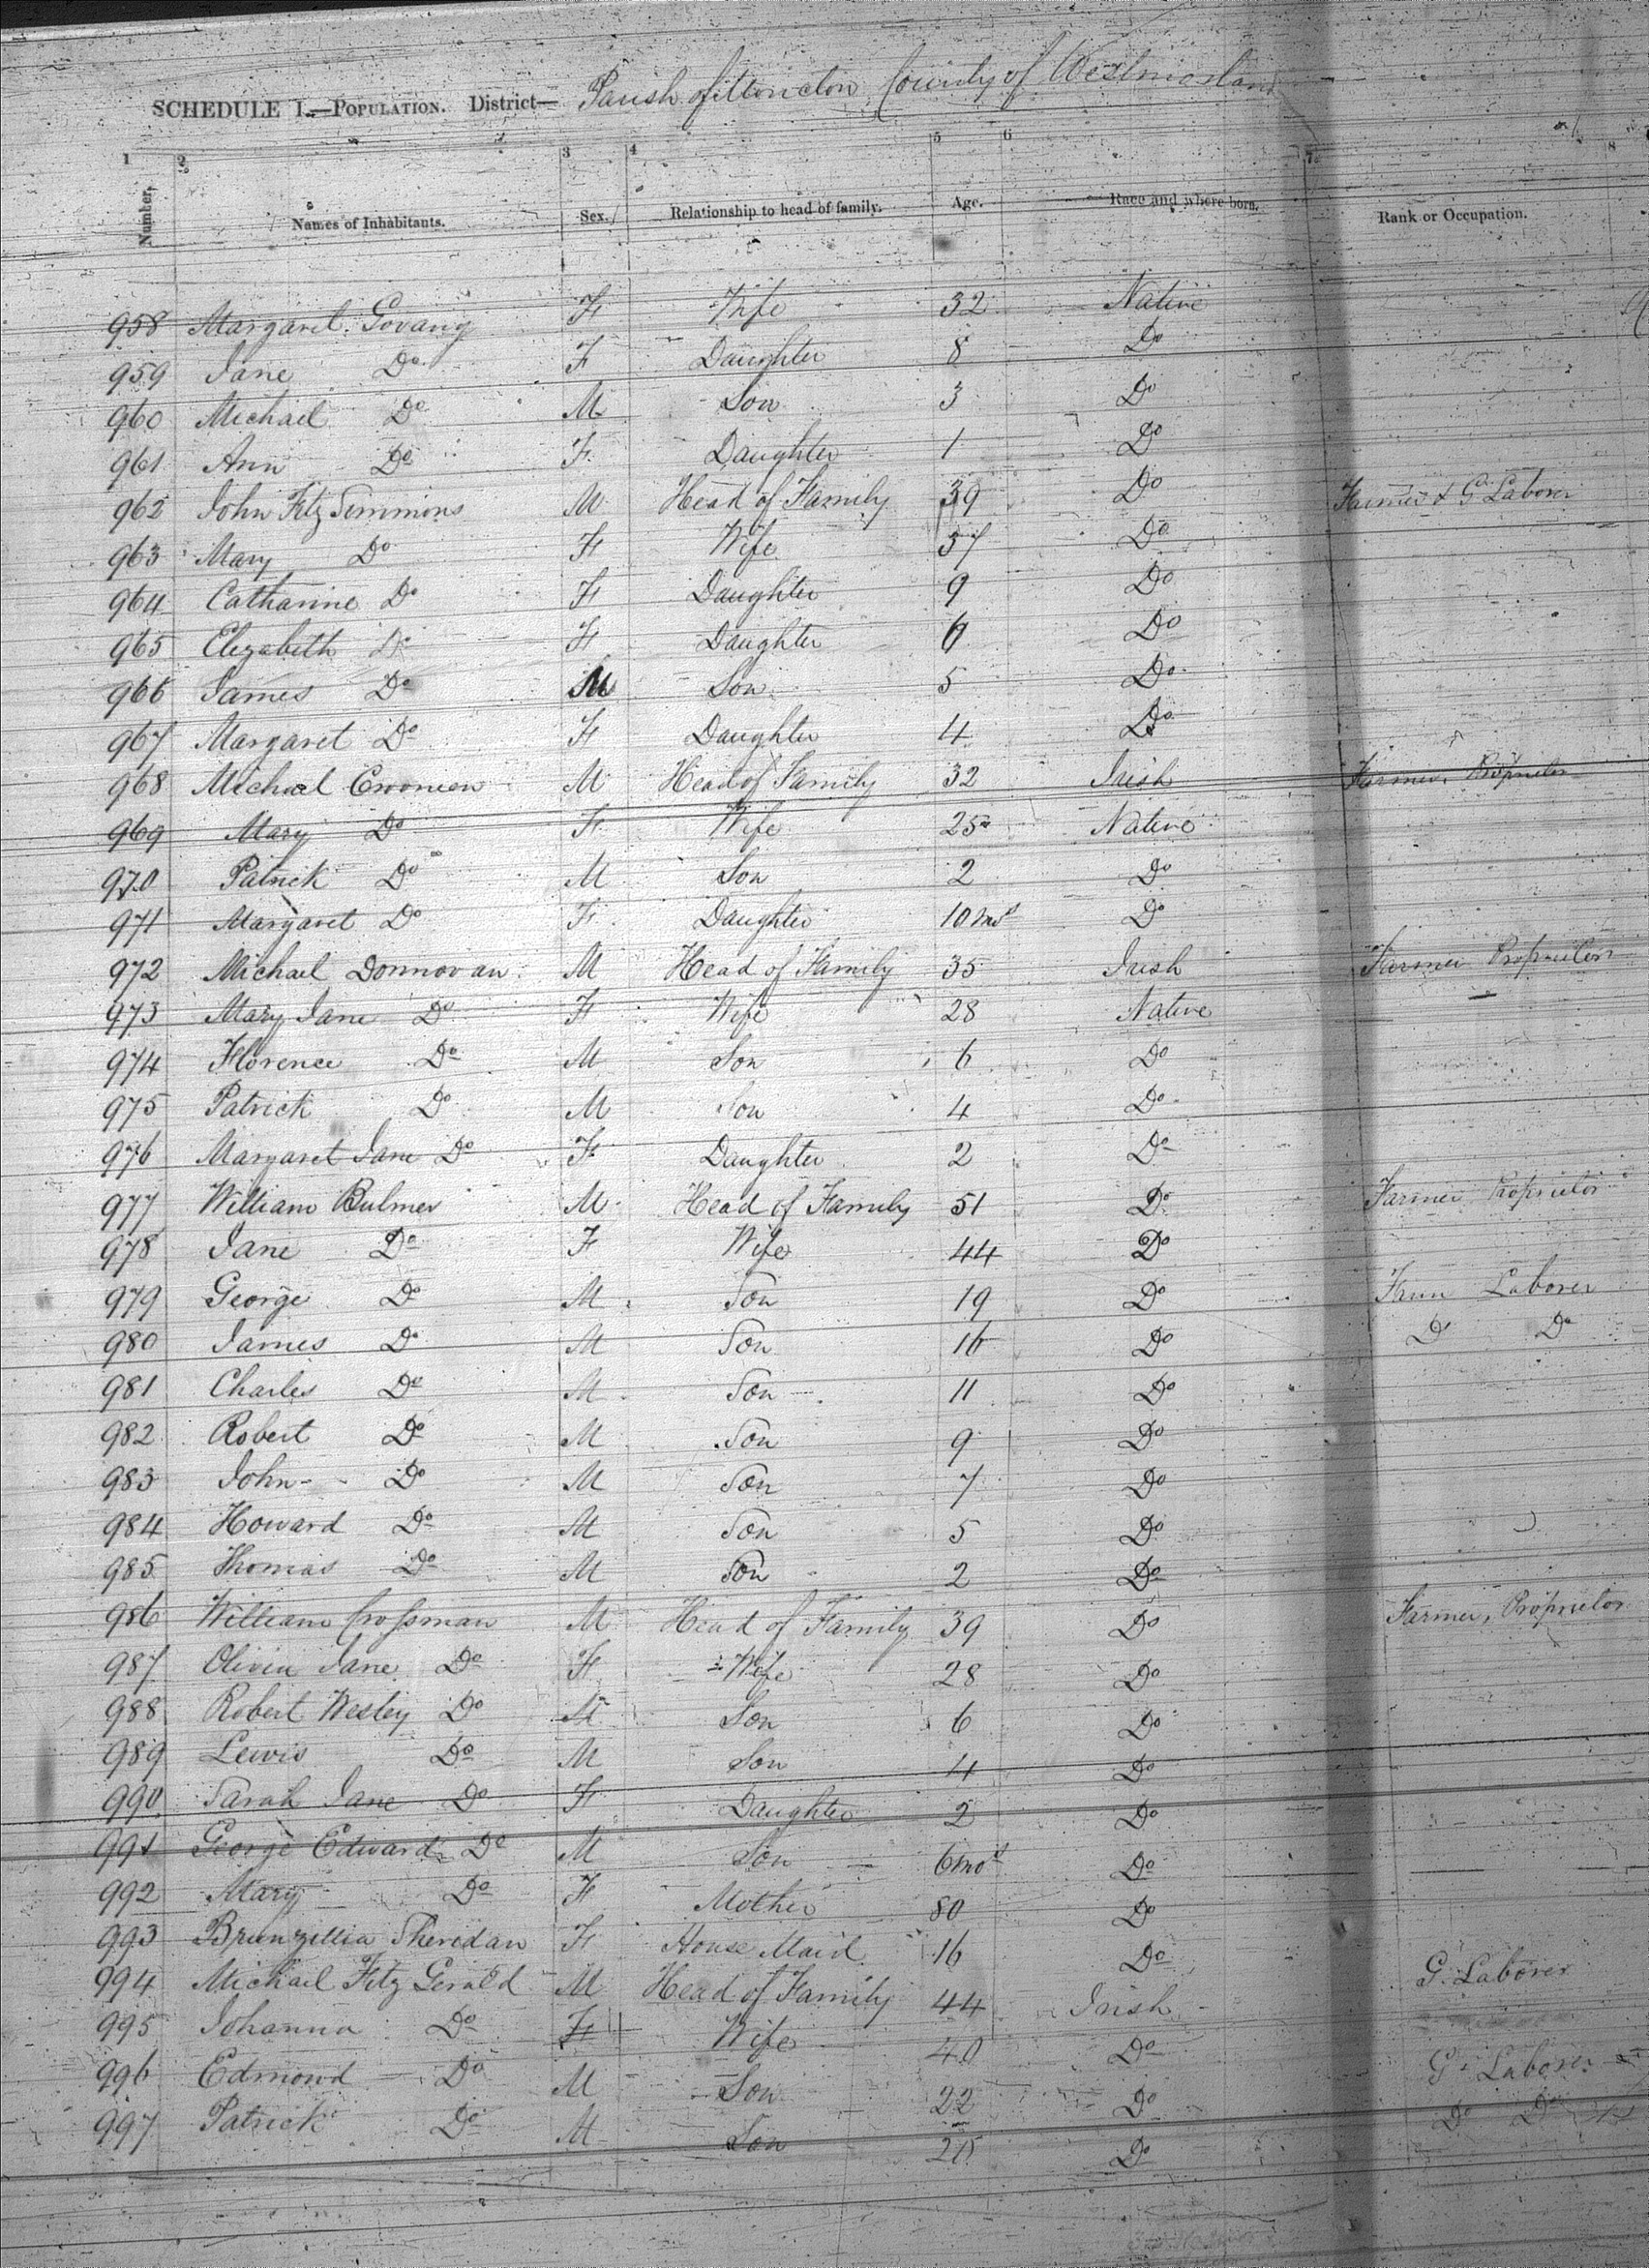 SCHEDULE I.—POPULATION. District— Parish of Moncton County of Westmorland
1 2 3 4 5 6 7 8
Number. Names of Inhabitants. Sex. Relationship to head of family. Age. Race and where born. Rank or Occupation.
958 Margaret F Wife 32 Native
959 Jane Do F Daughter 8 Do
960 Michael Do M Son 3 Do
961 Ann Do F Daughter 1 Do
962 John Fitz Simmons M Head of Family 39 Do Farmer & G. Laborer
963 Mary Do F Wife 37 Do
964 Catharine Do F Daughter 9 Do
965 Elizabeth Do F Daughter Do
966 James Do M Son 5 Do
967 Margaret Do F Daughter 4 Do
968 Michael M Head of Family 32 Irish Farmer, Proprietor
969 Mary Do F Wife 25 Native
970 Patrick Do M Son 2 Do
971 Margaret Do F Daughter 10 mos Do
972 Michael Donnovan M Head of Family 35 Irish Farmer Proprietor
973 Mary Jane Do F Wife 28 Native
974 Florence Do M Son 6 Do
975 Patrick Do M Son 4 Do
976 Margaret Jane Do F Daughter 2 Do
977 William Bulmer M Head of Family 51 Do Farmer Proprietor
978 Jane Do F Wife 44 Do
979 George Do M Son 19 Do Farm Laborer
980 James Do M Son 16 Do Do Do
981 Charles Do M Son 11 Do
982 Robert Do M Son 9 Do
983 John Do M Son 7 Do
984 Howard Do M Son 5 Do
985 Thomas Do M Son 2 Do
986 William Crossman M Head of Family 39 Do Farmer, Proprietor
987 Olivia Jane Do F Wife 28 Do
988 Robert Wesley Do M Son 6 Do
989 Lewis Do M Son 4 Do
990 Sarah Jane Do F Daughter 2 Do
991 George Edward Do M Son 6 mos Do
992 Mary Do F Mother 80 Do
993 Brunzillia Sheridan F House Maid 16 Do
994 Michael Fitz Gerald M Head of Family 44 Irish G. Laborer
995 Johanna Do F Wife 40 Do
996 Edmond Do M Son 22 Do G. Laborer
997 Patrick Do M Son Do Do Do